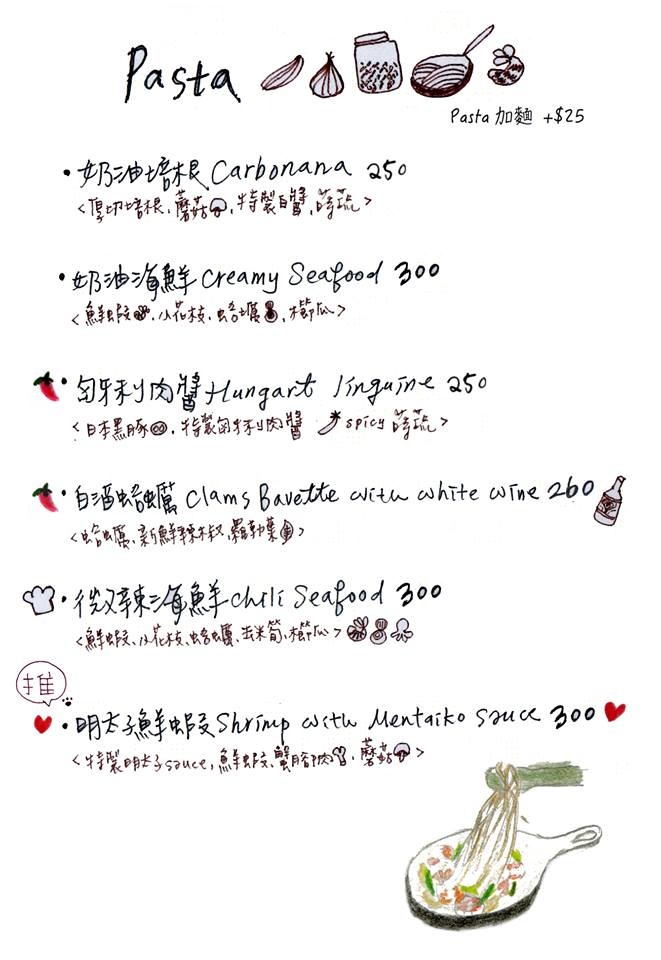 Pasta
Pasta 加麵 +$25
• 奶油培根 Carbonana 250
<厚切培根、蘑菇、特製白醬、時蔬>
• 奶油海鮮 Creamy Seafood 300
<鮮蝦、小花枝、蛤蠣、櫛瓜>
• 匈牙利肉醬 Hungart linguine 250
<日本黑豚、特製匈牙利肉醬 spicy 時蔬>
• 白酒蛤蠣 Clams Bavette with white wine 260
<蛤蠣、新鮮辣椒、羅勒葉>
• 微辣海鮮 Chili Seafood 300
<鮮蝦、小花枝、蛤蠣、玉米筍、櫛瓜>
推
• 明太子鮮蝦 Shrimp with Mentaiko sauce 300
<特製明太子sauce, 鮮蝦、蟹腿肉、蘑菇>